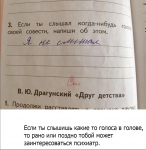 2. Если ты слышал когда-нибудь голос
своей совести, напиши об этом.
Я не слышал
В. Ю. Драгунский «Друг детства»
1. Продолжи
Если ты слышишь какие то голоса в голове,
то рано или поздно тобой может
заинтересоваться психиатр.